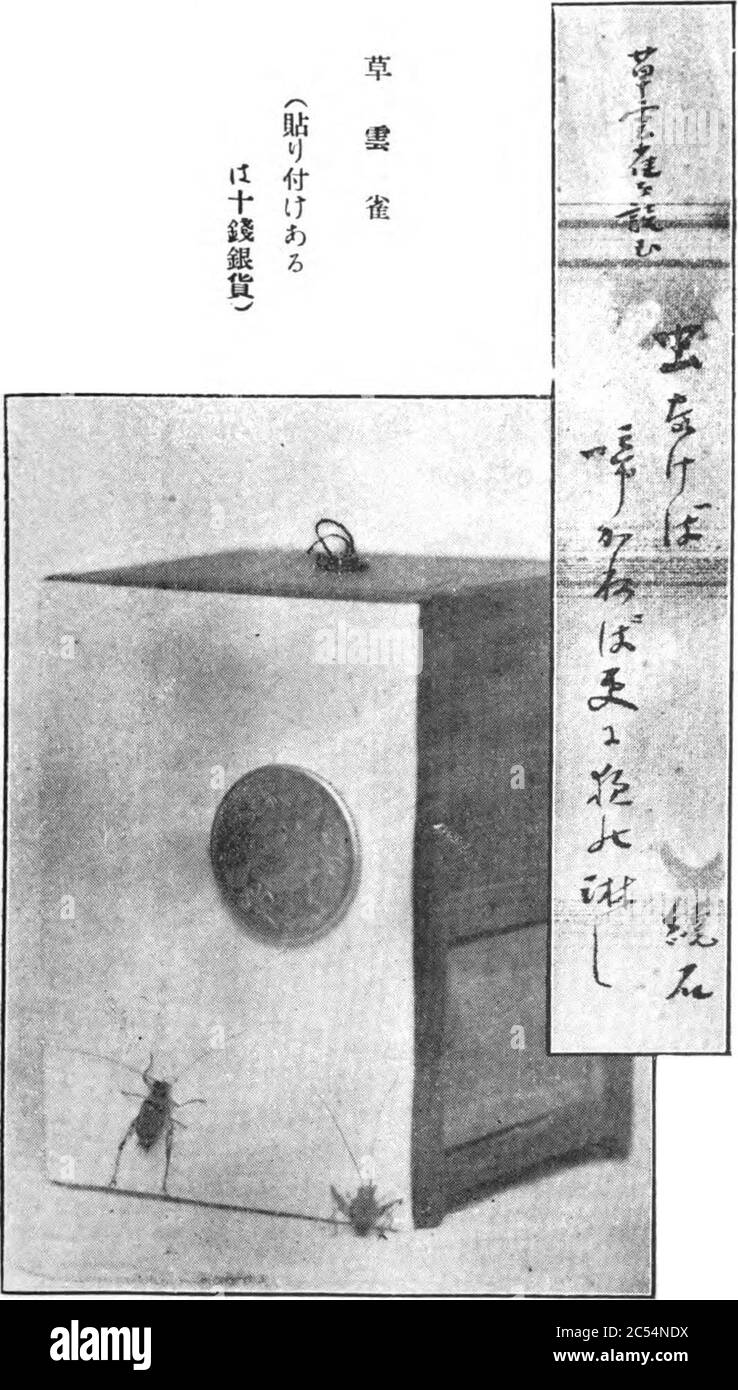 草雲雀を読む
虫なけば
繞石
啼かねば更に 淋し
草雲雀
(貼り付けある
は十錢銀貨)
alamy
alamy
a
a
a
a
a
a
alamy
Image ID: 2C54NDX
www.alamy.com